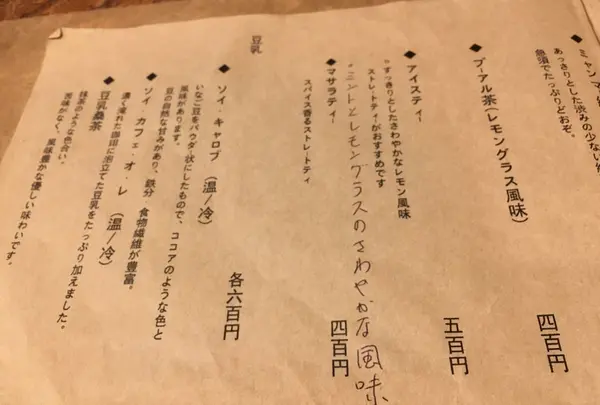 ◆ミャンマー
あっさりとした渋みの少ない
急須でたっぷりどおぞ。
四百円
◆プーアル茶(レモングラス風味)
五百円
◆アイスティー
"すっきりとしたさわやかなレモン風味
ストレートティがおすすめです
"ミントとレモングラスのさわやかな風味
◆マサラティー
四百円
スパイス香るストレートティ
豆乳
◆ソイ・キャロブ(温/冷)
各六百円
いなご豆をパウダー状にしたもので、ココアのような色と
風味があります。
豆の自然な甘みがあり、鉄分 食物繊維が豊富。
◆ソイ・カフェ・オ・レ(温/冷)
濃く淹れた珈琲に泡立てた豆乳をたっぷり加えました。
◆豆乳桑茶
抹茶のような色合い。
苦味がなく、風味豊かな優しい味わいです。